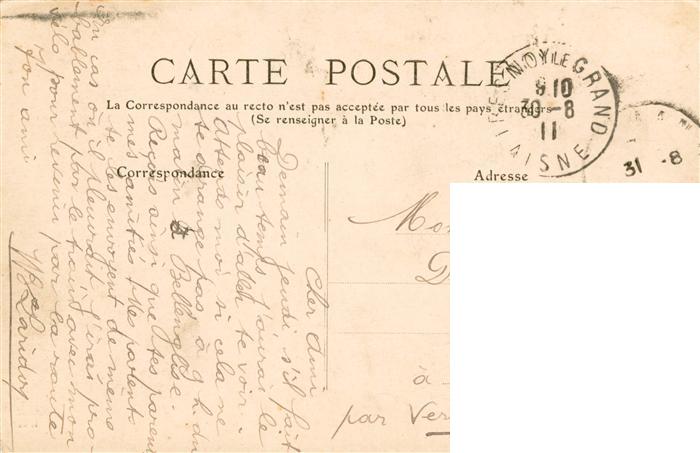 CARTE POSTALE
La Correspondance au recto n'est pas acceptée par tous les pays étrangers
(Se renseigner à la Poste)
Correspondance
Adresse
FRESNOY LE GRAND
8 10
30-8
11
AISNE
31 -8
Cher Ami
Demain jeudi, s'il fait
beau temps j'aurai le
plaisir d'aller te voir.
Attends moi si cela ne
te dérange pas, à 9 h. du
matin à Bellenglise.
Reçois ainsi que tes parents
mes amitiés. Mes parents
te les envoyent de même
Ton ami
En cas où il pleuvrait j'irais pro-
bablement par le train avec mon
vélo pour revenir par la route
à
par Ver